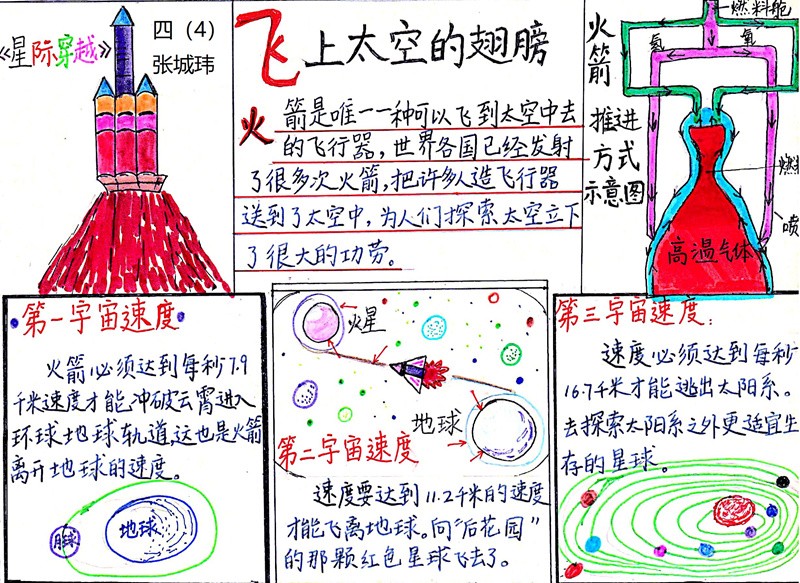 《星际穿越》
四（4）
张城玮
飞上太空的翅膀
火箭是唯一一种可以飞到太空中去
的飞行器，世界各国已经发射
了很多次火箭，把许多人造飞行器
送到了太空中，为人们探索太空立下
了很大的功劳。
火箭
推进
方式
示意图
燃料舱
氢
氧
燃
喷
高温气体
第一宇宙速度
火箭必须达到每秒7.9
千米速度才能冲破云霄进入
环球地球轨道，这也是火箭
离开地球的速度。
月球
地球
火星
地球
第二宇宙速度
速度要达到11.2千米的速度
才能飞离地球。向“后花园”
的那颗红色星球飞去了。
第三宇宙速度：
速度必须达到每秒
16.7千米才能逃出太阳系。
去探索太阳系之外更适宜生
存的星球。